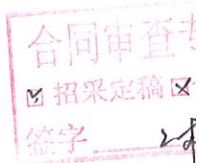 合同审查专
☑ 招采定稿 ☒
签字